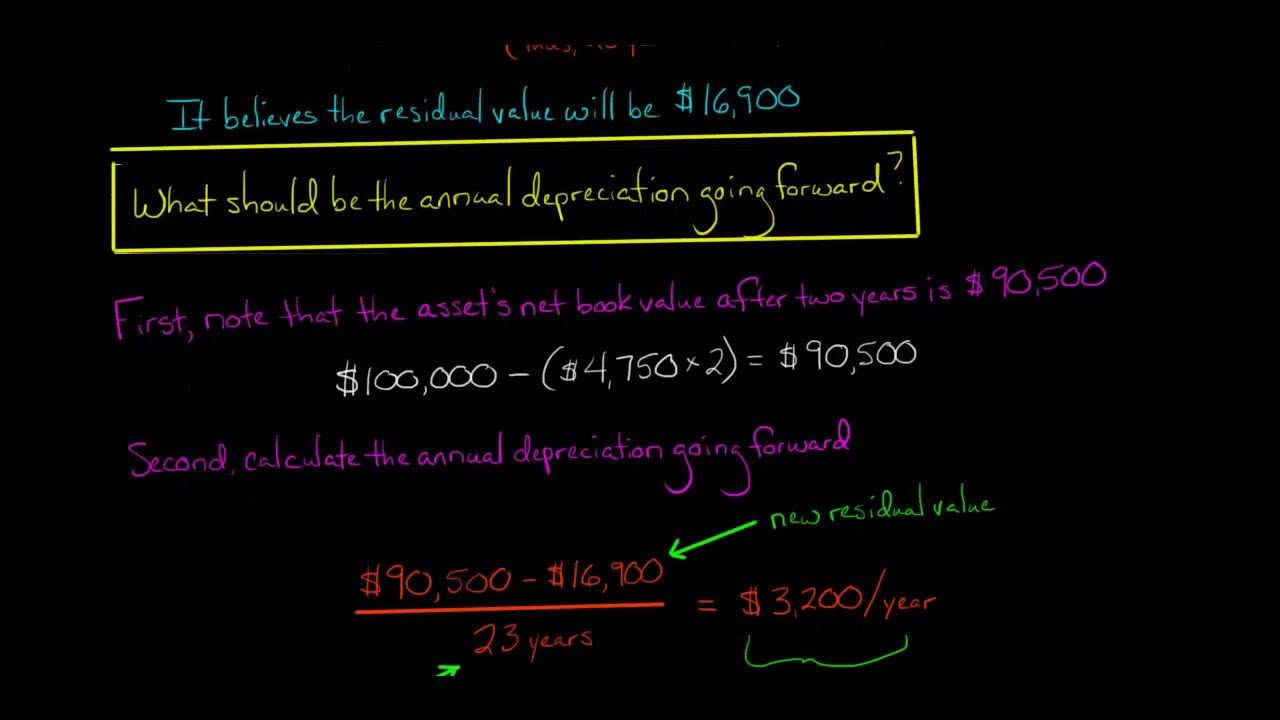 It believes the residual value will be $16,900
What should be the annual depreciation going forward?
First, note that the asset's net book value after two years is $90,500
$100,000 – ($4,750 × 2) = $90,500
Second, calculate the annual depreciation going forward
new residual value
$90,500 – $16,900
= $3,200/year
23 years